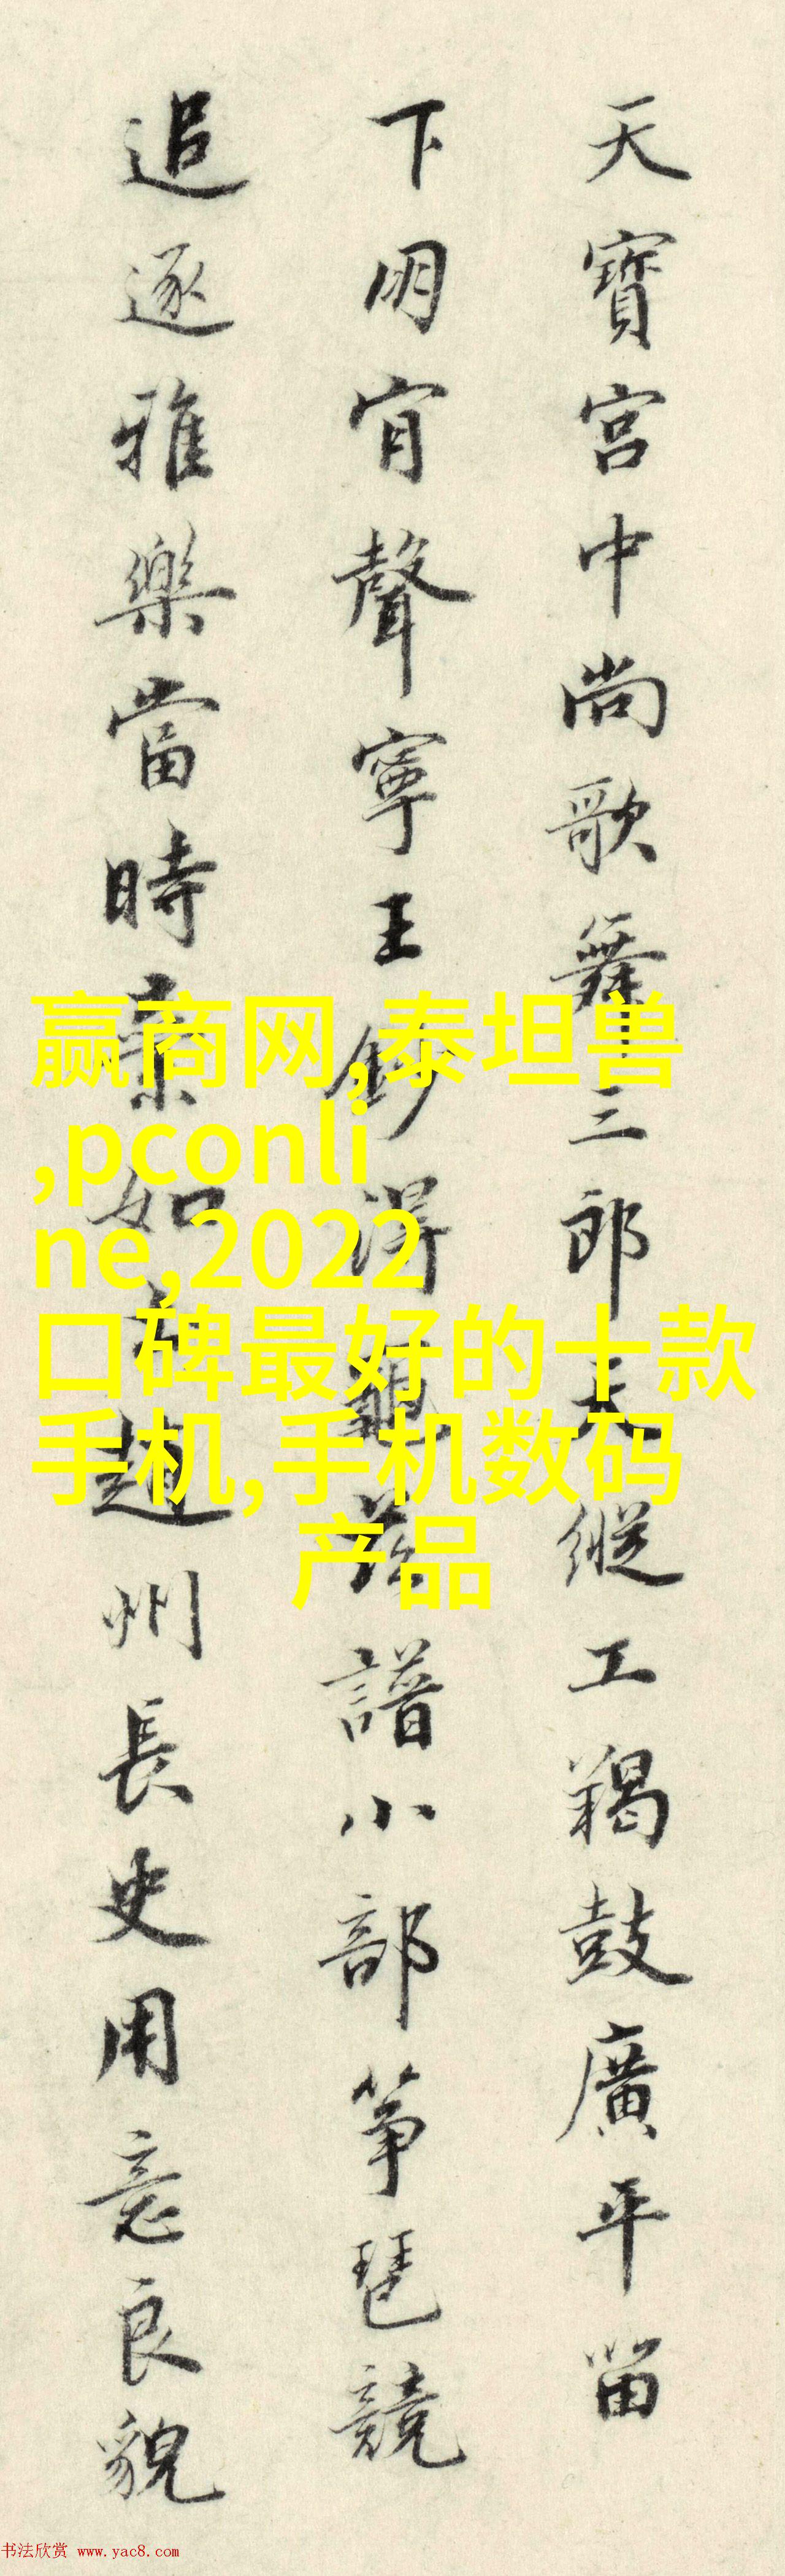 天寶宮中尚歌舞三郎天縱工羯鼓廣平留
下朋肯聲寧王鈔得龜茲譜小部箏琶競
追逐雅樂當時棄如趙州長史用意良貌
赢商网,泰坦兽
,pconli
ne,2022
口碑最好的十款
手机,手机数码
产品
书法欣赏 www.yac8.com